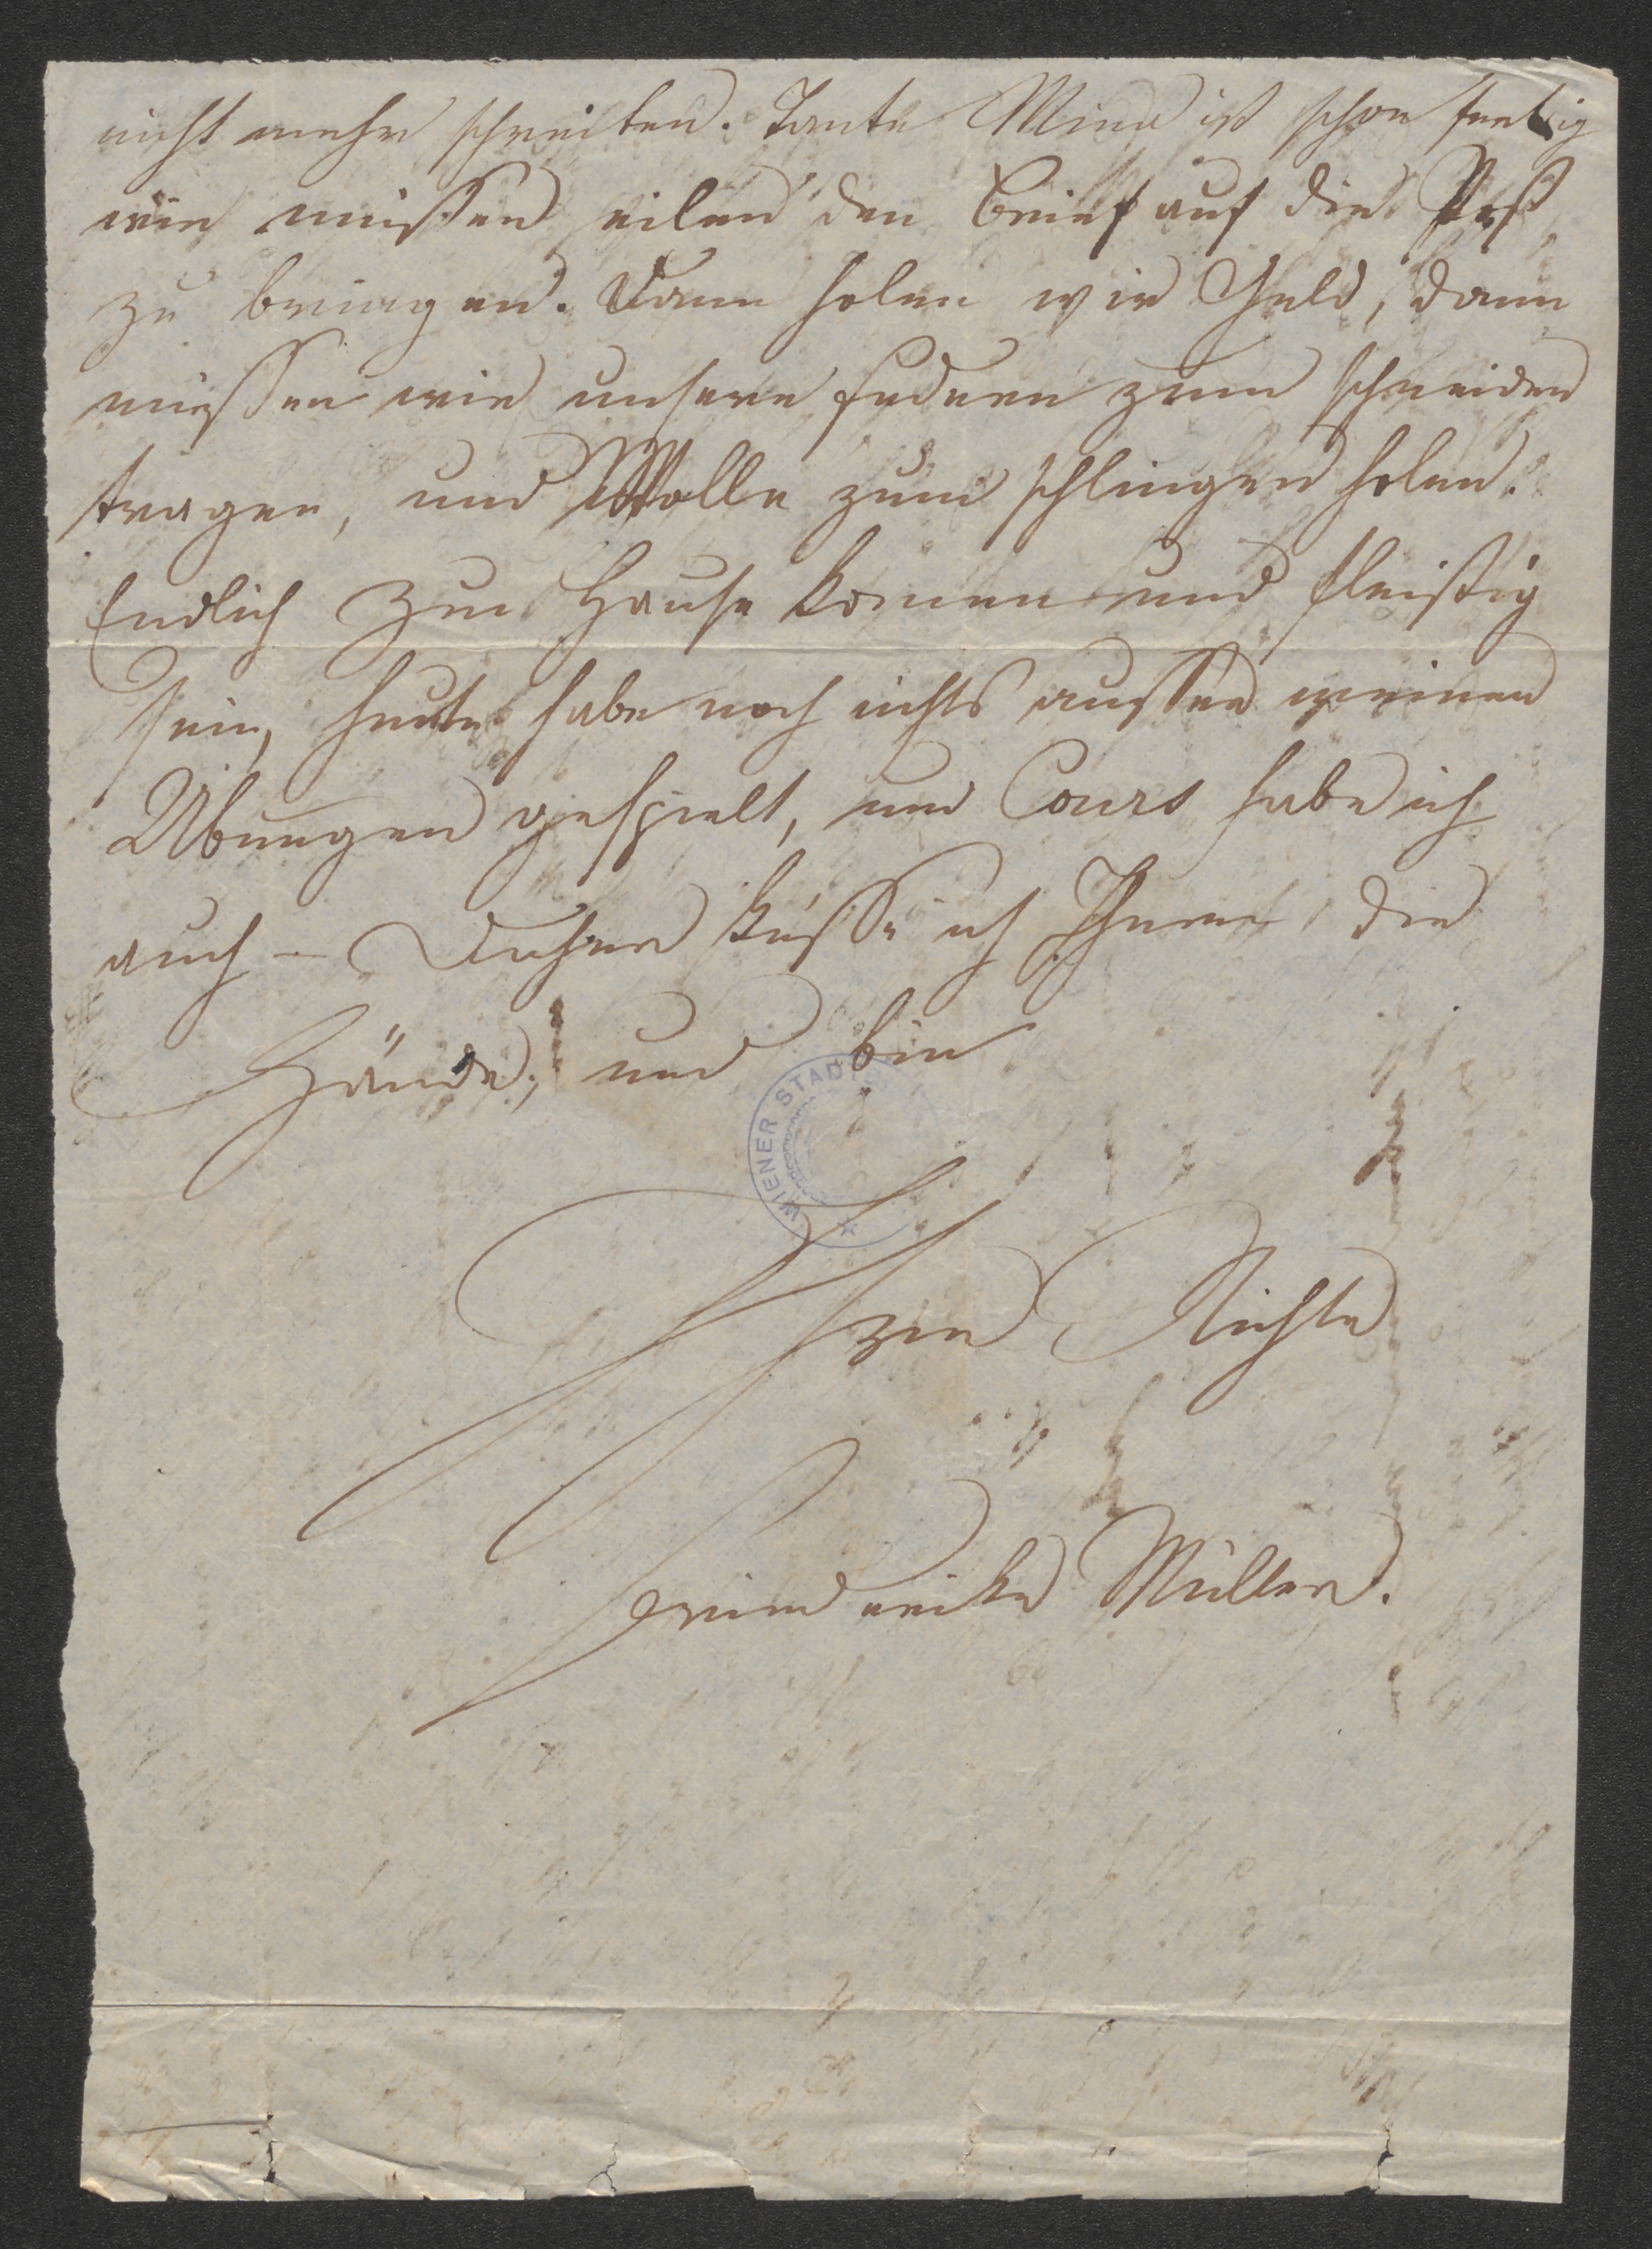 nicht mehr schreiben. Tante Mina ist schon fertig
wir müssen eilen den Brief auf die Post
zu bringen. Dann holen wir Geld, dann
müssen wir unsere Federn zum schneiden
tragen, und Wolle zum schlingen holen.
Endlich zu Hause komen und fleißig
sein, heute habe noch nichts ausser meinen
Übungen gespielt, und Cours habe ich
auch – Daher küsse ich Ihnen die
Hände, und bin
WIENER STAD
Ihre Nichte
Müller.